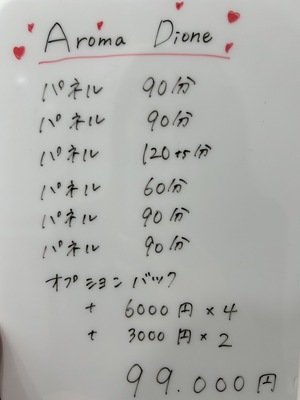 Aroma Dione
パネル 90分
パネル 90分
パネル 120+5分
パネル 60分
パネル 90分
パネル 90分
オプションバック
+ 6000円×4
+ 3000円×2
99.000円